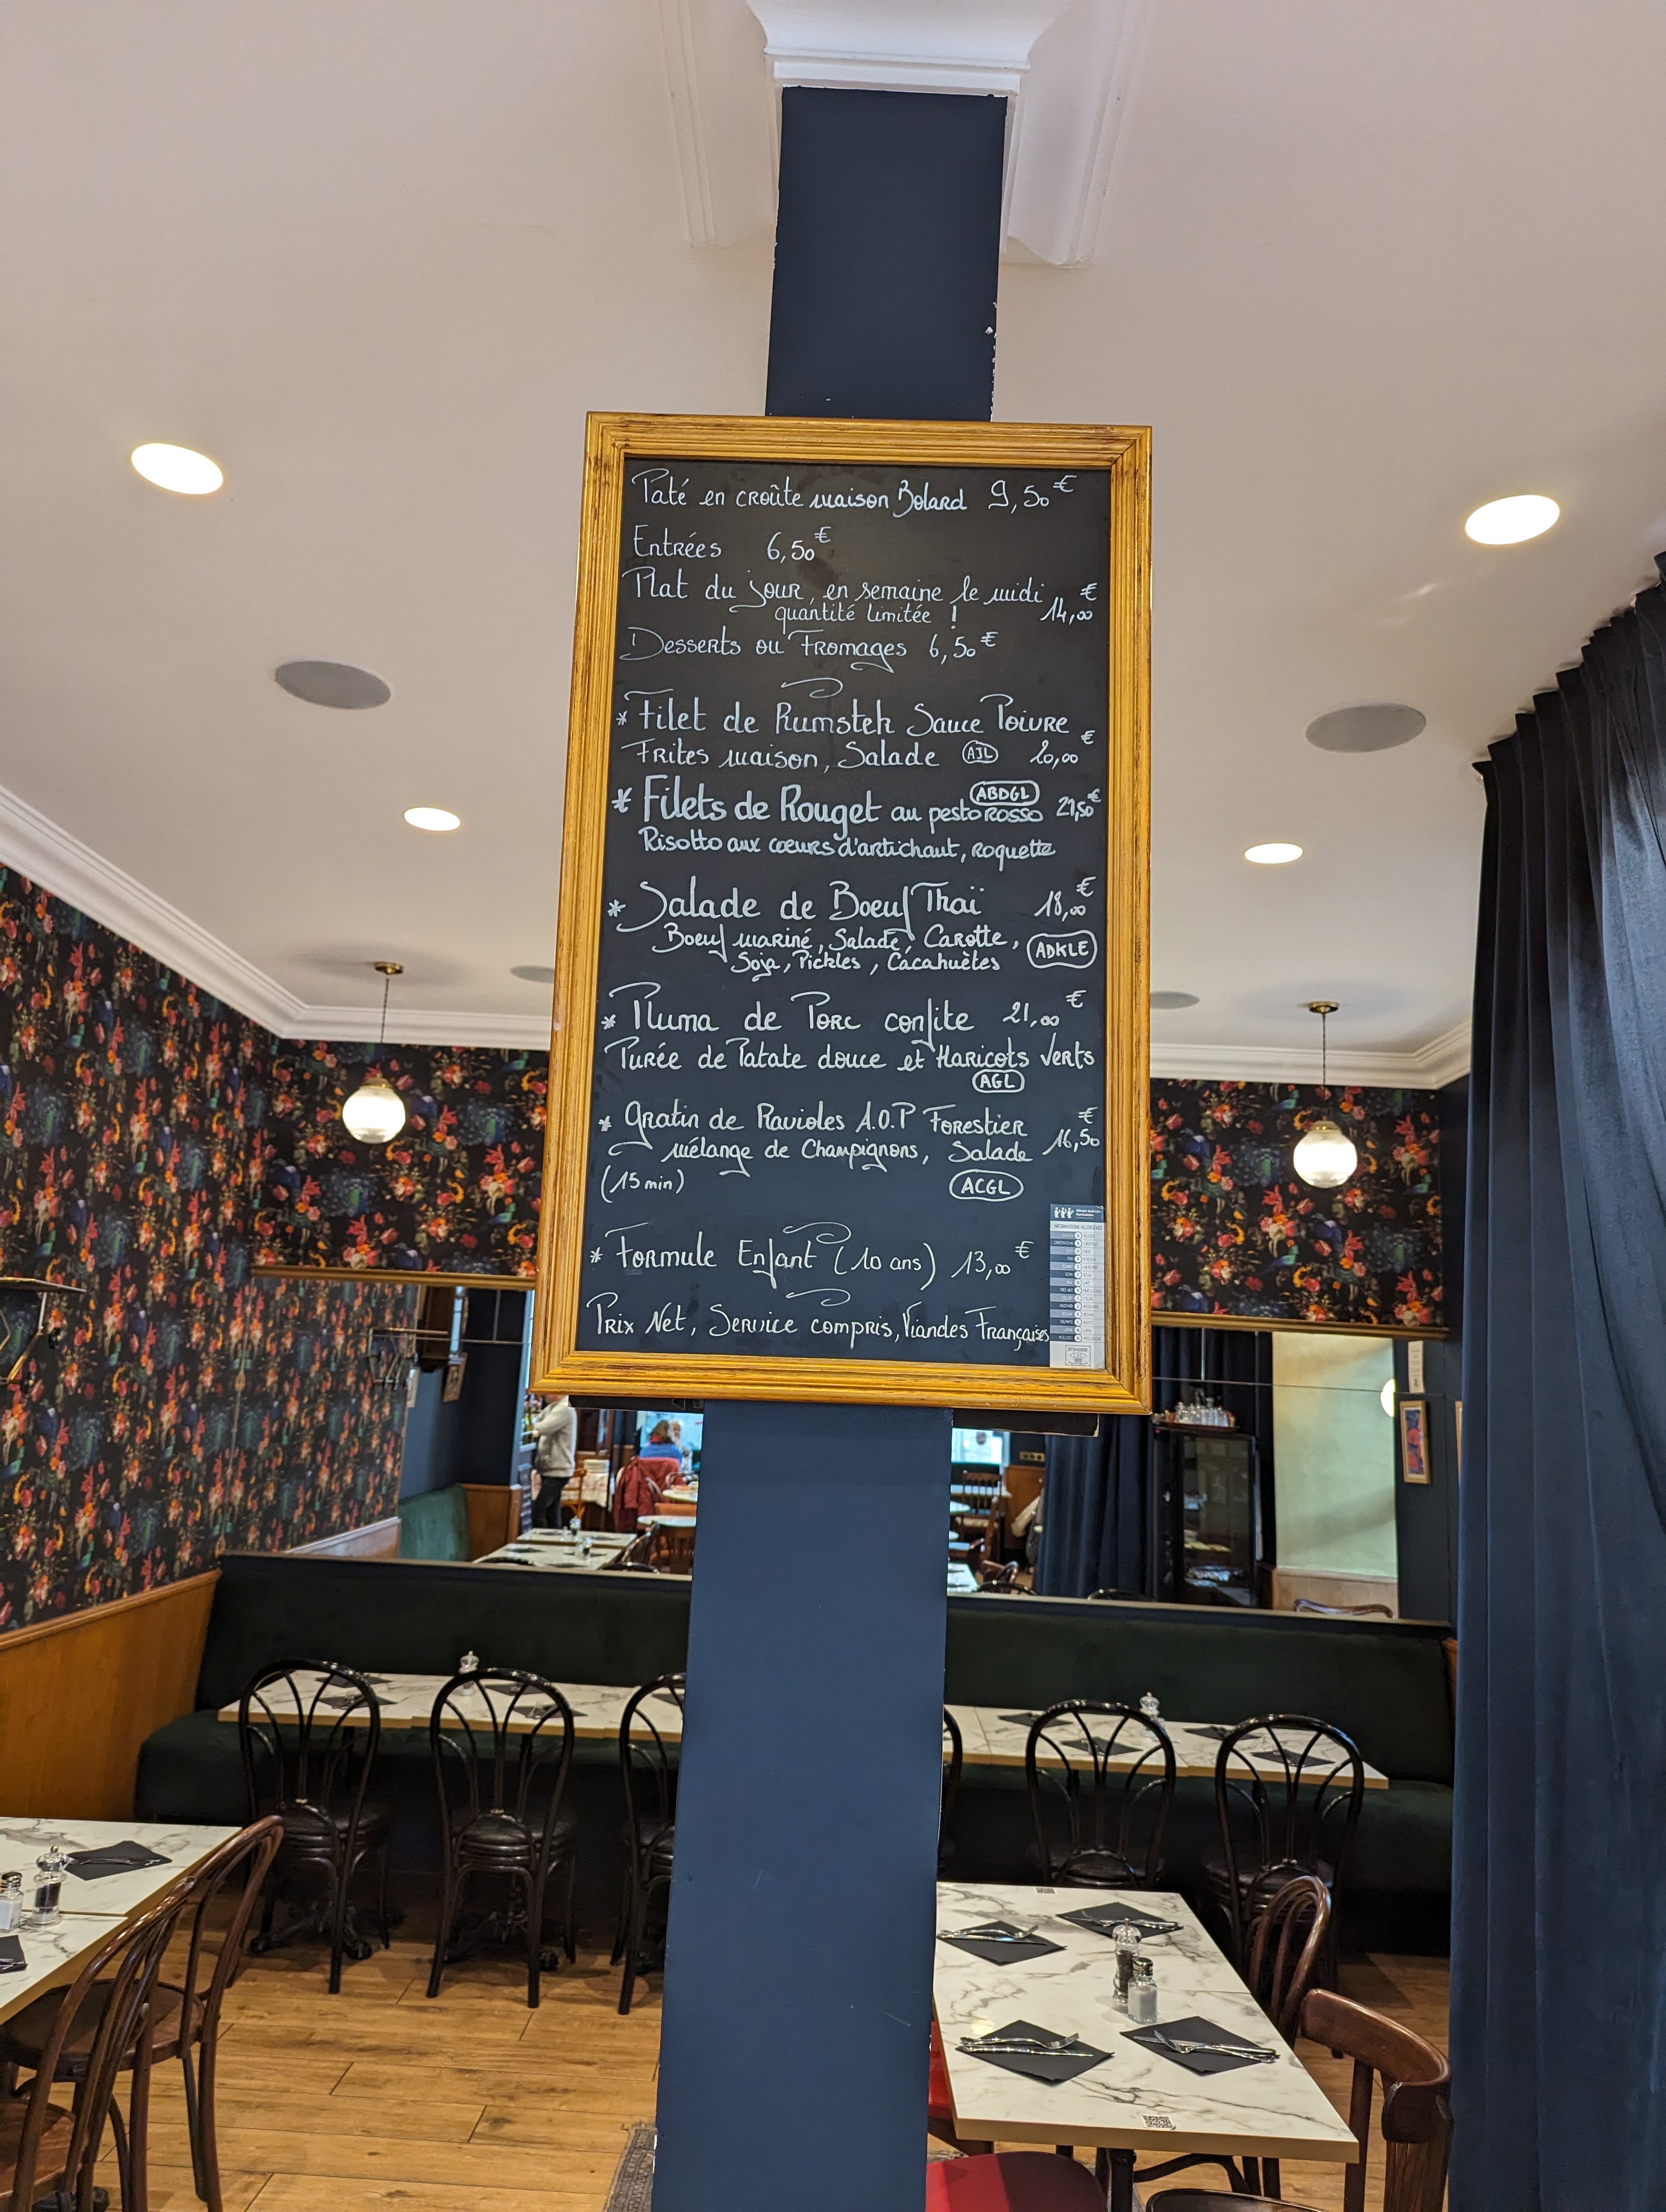 Paté en croûte maison Bolard 9,50€
Entrées 6,50€
Plat du jour, en semaine le midi
quantité limitée ! 14,00€
Desserts ou Fromages 6,50€
* Filet de Rumstek Sauce Poivre
Frites maison, Salade AJL 20,00€
* Filets de Rouget au pesto rosso ABDGL 21,50€
Risotto aux cœurs d'artichaut, roquette
* Salade de Boeuf Thaï 18,00€
Boeuf mariné, Salade, Carotte,
Soja, Pickles, Cacahuètes ADKLE
* Pluma de Porc confite 21,00€
Purée de Patate douce et Haricots Verts
AGL
* Gratin de Ravioles A.O.P Forestier
mélange de Champignons, Salade 16,50€
(15 min) ACGL
* Formule Enfant (10 ans) 13,00€
Prix Net, Service compris, Viandes Françaises